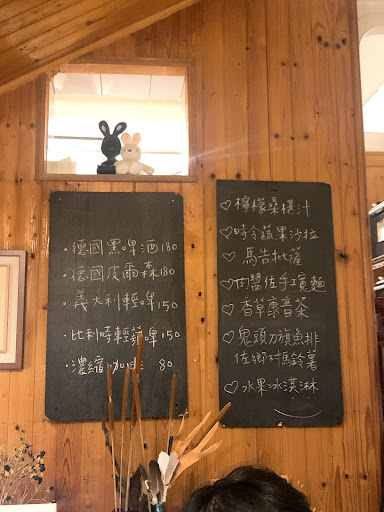 ·德國黑啤酒180
·德國皮爾森180
·義大利輕啤150
·比利時輕啤150
·濃縮咖啡 80
♡檸檬桑椹汁
♡時令蔬果沙拉
♡馬告批薩
♡肉醬佐手工寬麵
♡香草康普茶
♡鬼頭刀旗魚排
佐鄉村馬鈴薯
♡水果冰淇淋